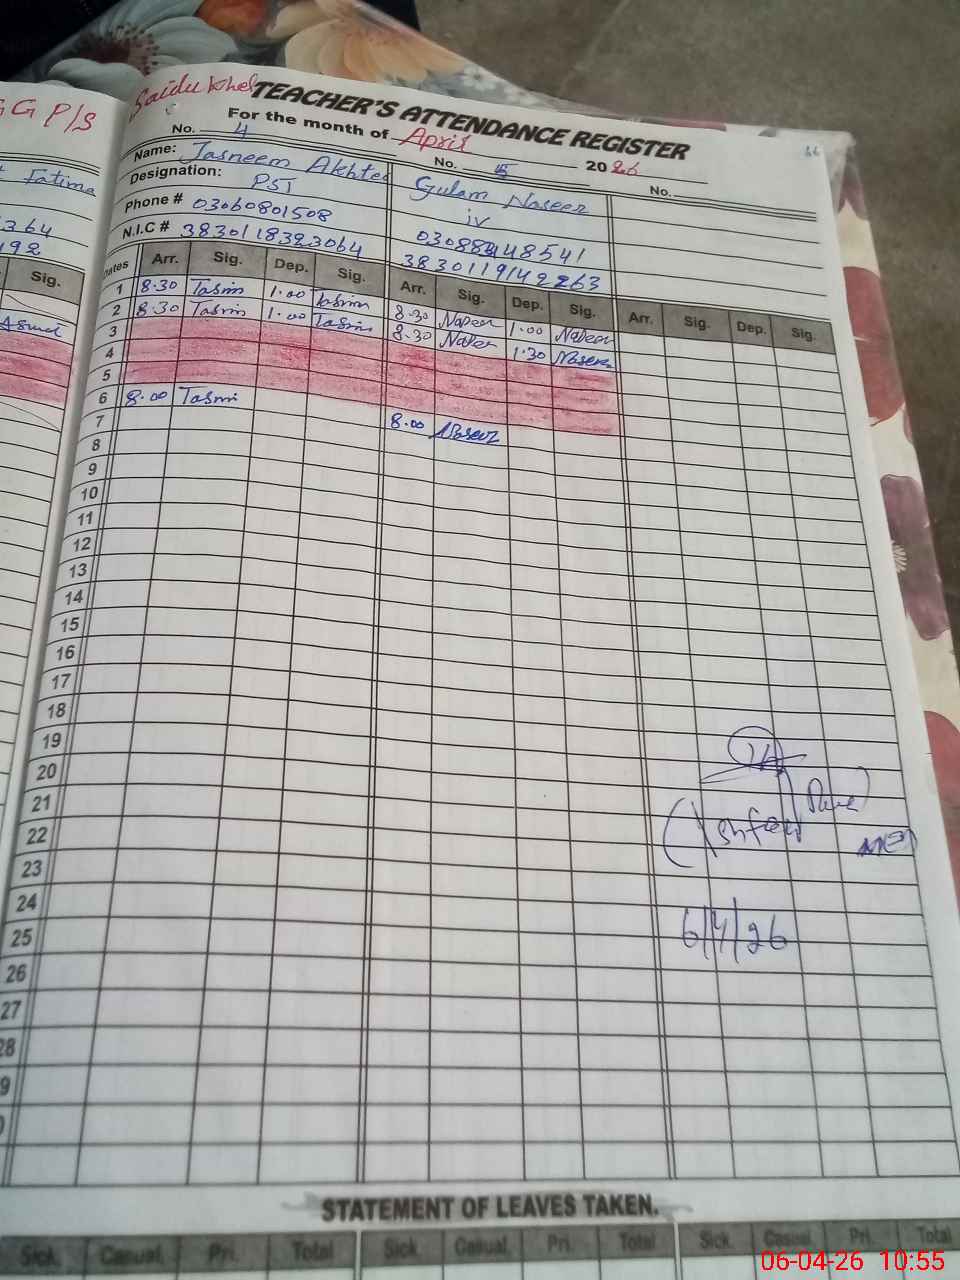 GG P/S
Saidu khel TEACHER'S ATTENDANCE REGISTER
For the month of April 2026
66
No. 4 No. 5 No.
Name: Tasneem Akhter Gulam Naseer
Designation: PST iv
Phone # 03060801508
N.I.C # 3830118323064 3830119142263
Fatima
364
192
Sig.
Asmd
Dates Arr. Sig. Dep. Sig. Arr. Sig. Dep. Sig. Arr. Sig. Dep. Sig.
1 8.30 Tasnim 1.00 Tasnim 8.30 Naseer 1.00 Naseer
2 8.30 Tasnim 1.00 Tasnim 8.30 Naseer 1.30 Naseer
3
4
5
6 8.00 Tasni 8.00 Naseer
7
8
9
10
11
12
13
14
15
16
17
18
19
20
21
22
23
24
25
26
27
28
9
6/4/26
STATEMENT OF LEAVES TAKEN.
Sick. Casual. Pri. Total Sick. Casual. Pri. Total Sick. Casual. Pri. Total
06-04-26 10:55